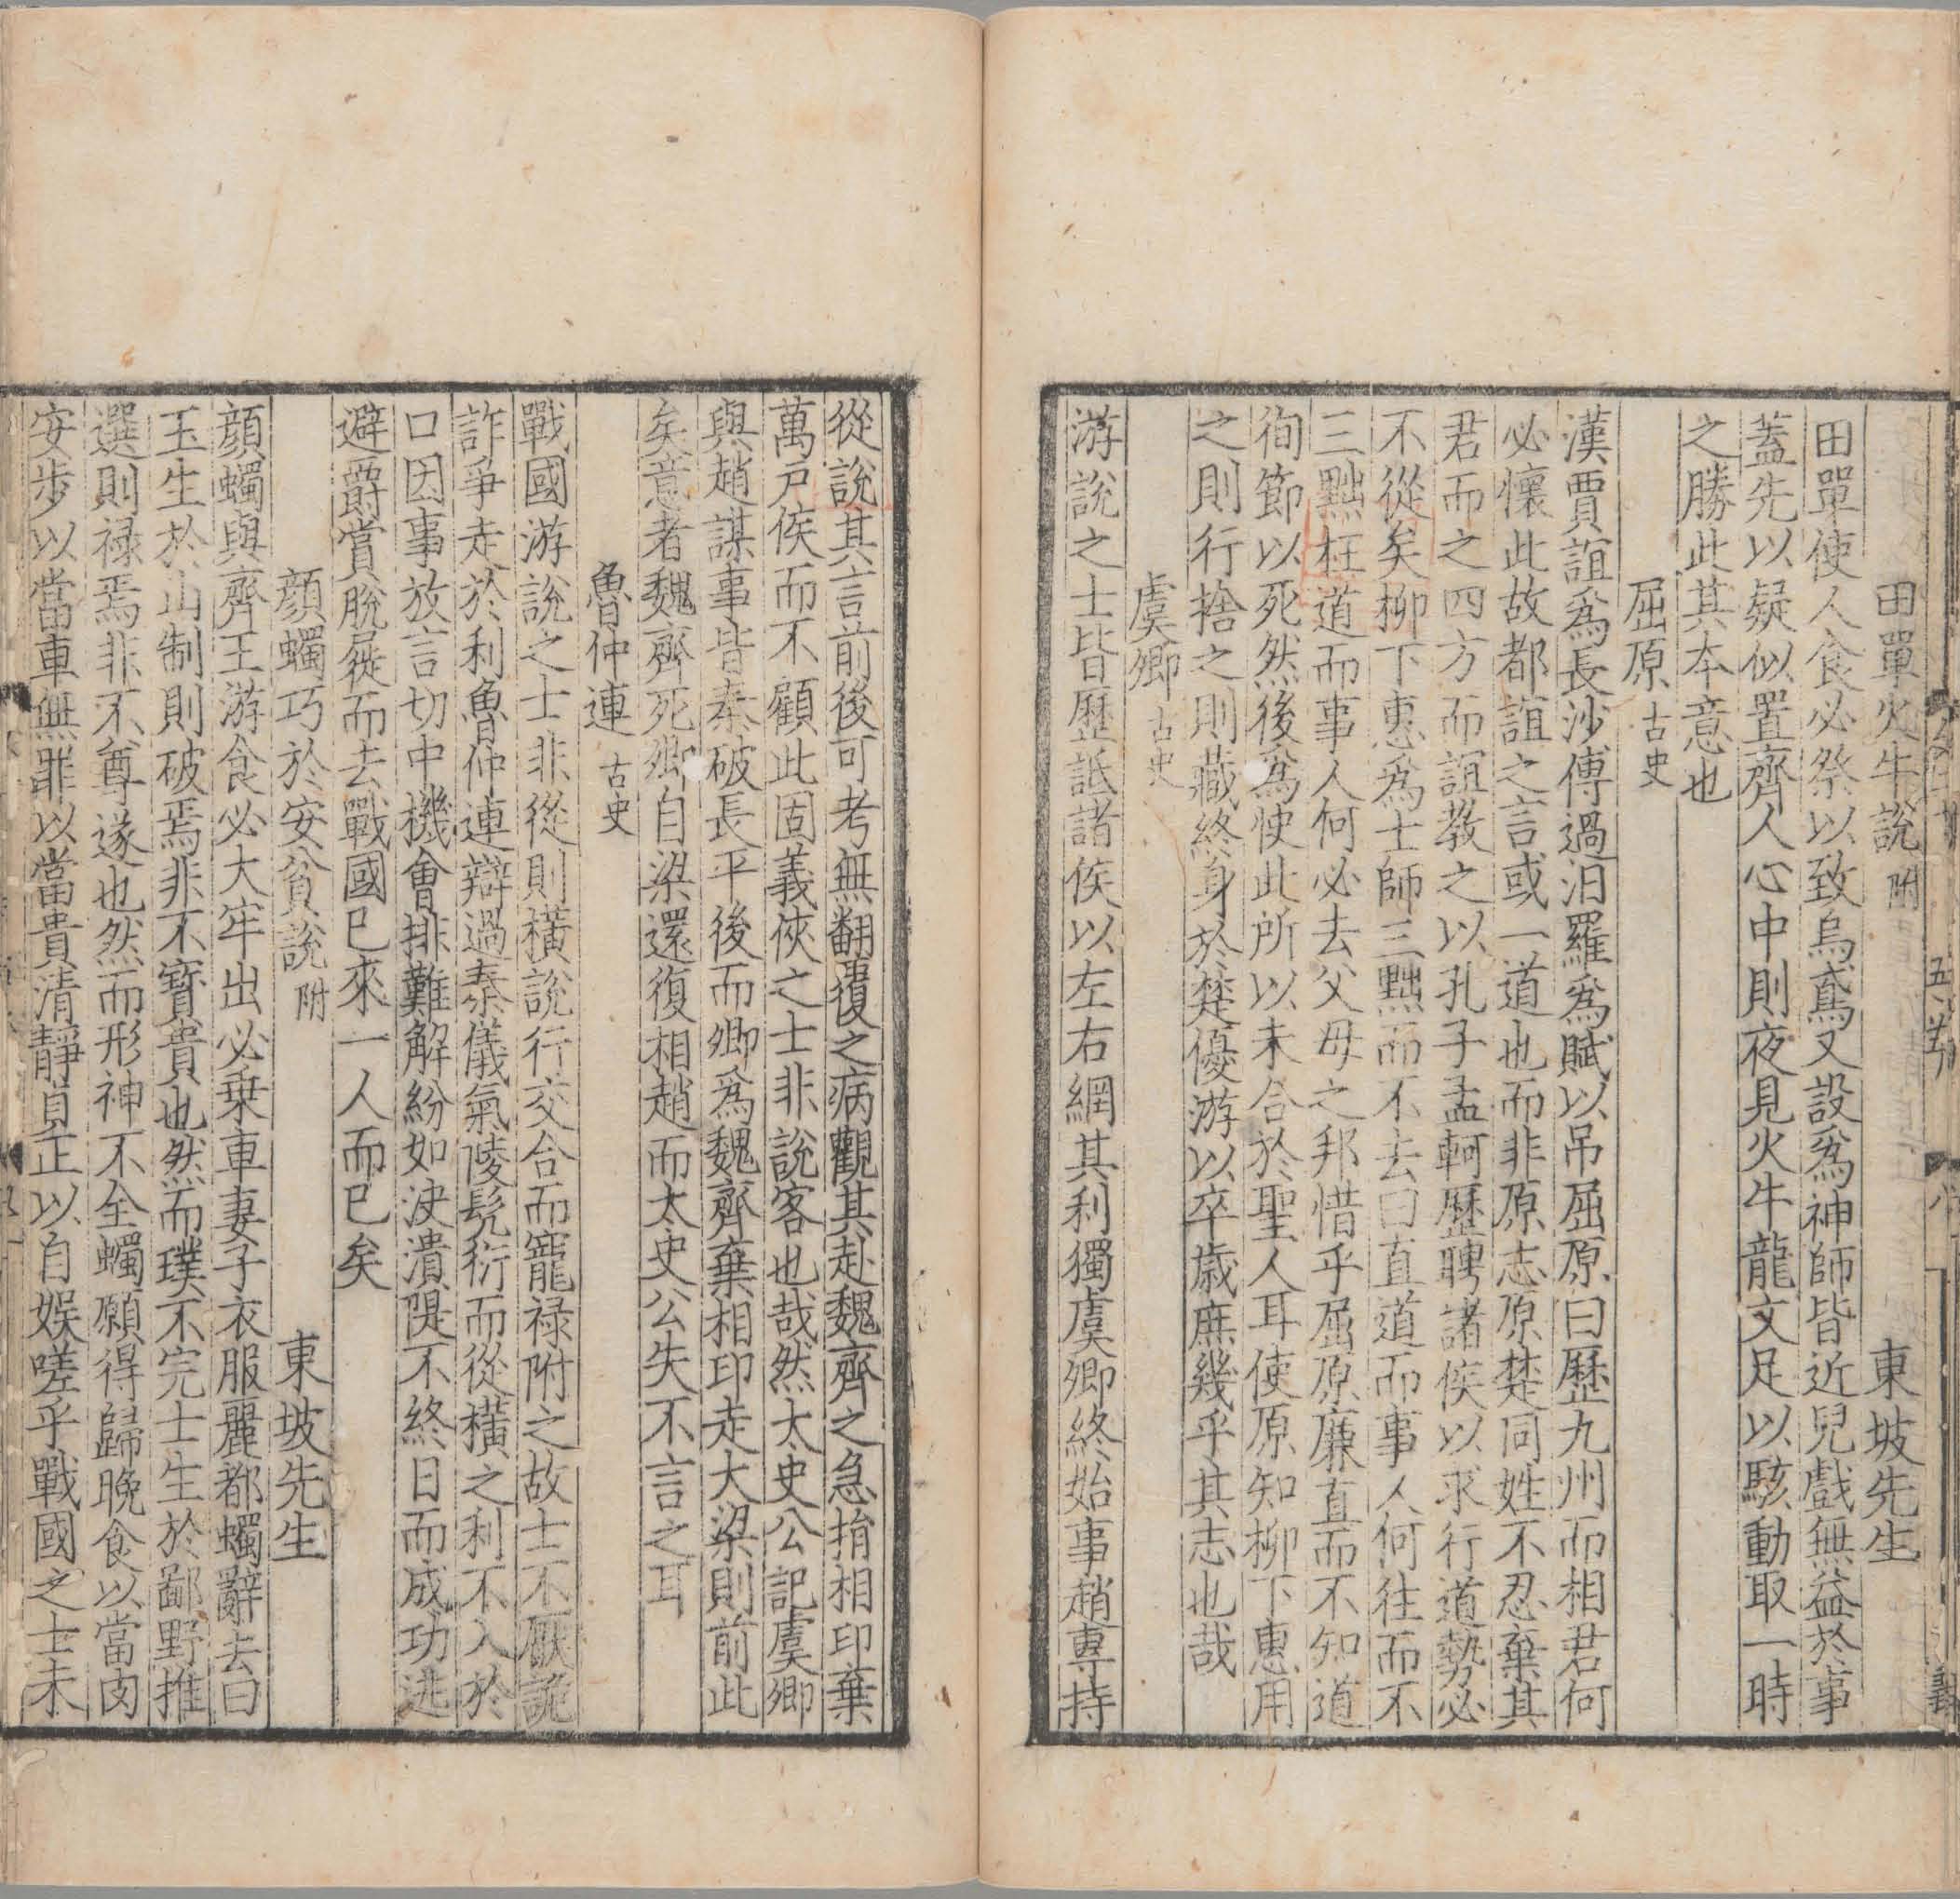 田單火牛說 附 東坡先生
田單使人食必祭以致烏鳶又設爲神師皆近兒戲無益於事
蓋先以疑似置齊人心中則夜見火牛龍文足以駭動取一時
之勝此其本意也
屈原 古史
漢賈誼爲長沙傅過汨羅爲賦以吊屈原曰歷九州而相君何
必懷此故都誼之言或一道也而非原志原楚同姓不忍棄其
君而之四方而誼教之以孔子孟軻歷聘諸侯以求行道勢必
不從矣柳下惠爲士師三黜而不去曰直道而事人何往而不
三黜枉道而事人何必去父母之邦惜乎屈原廉直而不知道
徇節以死然後爲快此所以未合於聖人耳使原知柳下惠用
之則行捨之則藏終身於楚優游以卒歲庶幾乎其志也哉
虞卿 古史
游說之士皆歷詆諸侯以左右網其利獨虞卿終始事趙專持
從說其言前後可考無翻覆之病觀其赴魏齊之急捐相印棄
萬戶侯而不顧此固義俠之士非說客也哉然太史公記虞卿
與趙謀事皆秦破長平後而卿爲魏齊棄相印走大梁則前此
矣意者魏齊死卿自梁還復相趙而太史公失不言之耳
魯仲連 古史
戰國游說之士非從則橫說行交合而寵祿附之故士不厭詭
詐爭走於利魯仲連辯過秦儀氣陵髡衍而從橫之利不入於
口因事放言切中機會排難解紛如決潰隄不終日而成功逃
避爵賞脫屣而去戰國已來一人而已矣
顔蠋巧於安貧說 附 東坡先生
顔蠋與齊王游食必大牢出必乗車妻子衣服麗都蠋辭去曰
玉生於山制則破焉非不寳貴也然而璞不完士生於鄙野推
選則祿焉非不尊遂也然而形神不全蠋願得歸晚食以當肉
安步以當車無罪以當貴清靜貞正以自娛嗟乎戰國之士未